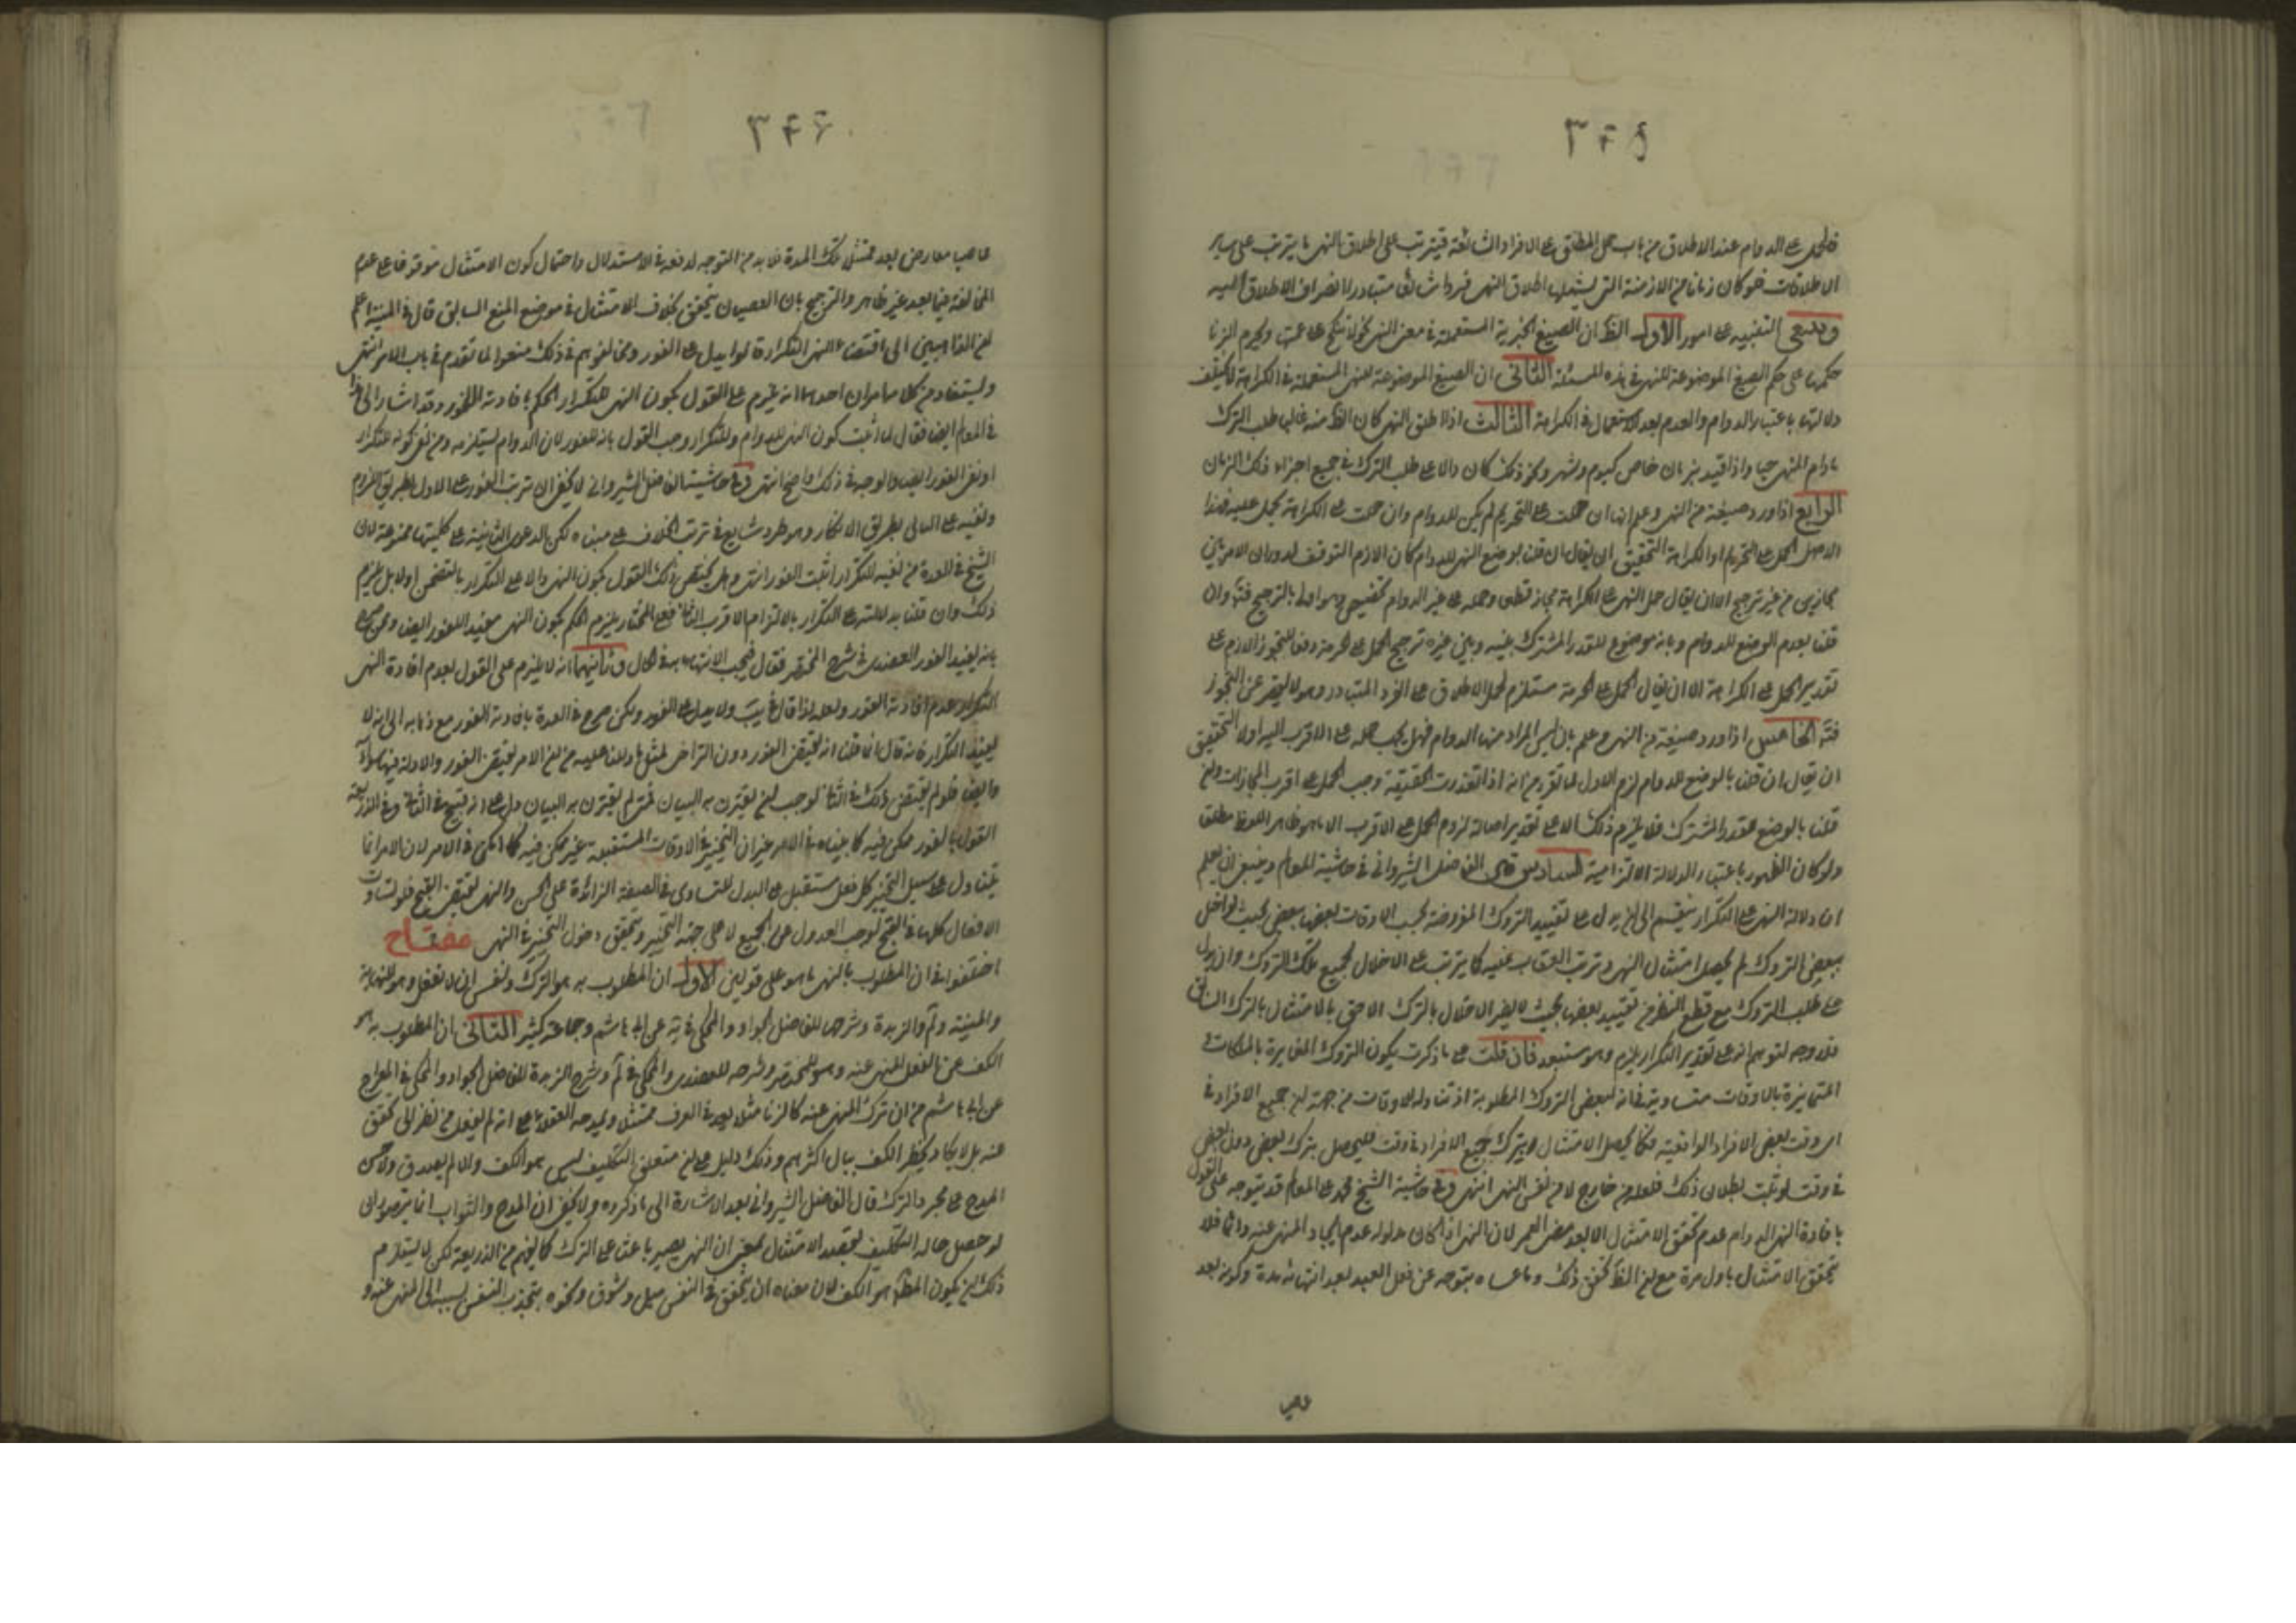 ٣٤٥
فالحمل على الدوام عند الاطلاق من باب حمل المطلق على الافراد الشائعة فيترتب على اطلاق النهى ما يترتب على ساير
الاطلاقات فلو كان زمانا من الازمنة التى يشملها اطلاق النهى فردا شائعا متبادرا انصراف الاطلاق اليه
وينبغى التنبيه على امور الاول الظ ان الصيغ الخبرية المستعملة فى معنى النهى
حكمها على حكم الصيغ الموضوعة للنهى فى هذه المسئلة الثانى ان الصيغ الموضوعة للنهى المستعملة فى الكراهة لا يختلف
دلالتها باعتبار الدوام والعدم بعد الاستعمال فى الكراهة الثالث اذا اطلق النهى كان الظ منه غالبا طلب الترك
مادام المنهى حيا واذا قيد بزمان خاص كيوم وشهر ونحو ذلك كان دالا على طلب الترك فى جميع اجزاء ذلك الزمان
الرابع اذا ورد صيغة من النهى وعلم انها ان حملت على التحريم لم يكن للدوام وان حملت على الكراهة يحمل عليه فهذا
الاصل الحمل على التحريم او الكراهة التحقيق ان يقال ان قلنا بوضع النهى للدوام كان اللازم التوقف لدوران الامر بين
مجازين من غير ترجيح الا ان يقال حمل النهى على الكراهة مجاز قطعى وحمله على غير الدوام تخصيص وهو اولى بالترجيح فتأمل وان
قلنا بعدم الوضع للدوام وبانه موضوع للقدر المشترك بينه وبين غيره ترجح الحمل على الحرمة دفعا للتجوز اللازم على
تقدير الحمل على الكراهة الا ان يقال الحمل على الحرمة مستلزم لحمل الاطلاق على الفرد المتبادر وهو لا يقصر عن التجوز
فتأمل الخامس اذا ورد صيغة من النهى وعلم بان ليس المراد منها الدوام فهل يجب حمله على الاقرب اليه او لا التحقيق
ان يقال ان قلنا بالوضع للدوام لزم الاول لما تقرر من انه اذا تعذرت الحقيقة وجب الحمل على اقرب المجازات وان
قلنا بالوضع للقدر المشترك فلا يلزم ذلك الا على تقدير اصالة لزوم الحمل على الاقرب الى ما هو ظاهر اللفظ مطلق
ولو كان الظهور باعتبار الدلالة الالتزامية السادس قال الفاضل الشيروانى فى حاشية المعالم وينبغى ان يعلم
ان دلالة النهى على التكرار ينقسم الى ان يدل على تقييد التروك المفروضة بحسب الاوقات بعضها ببعض بحيث لو اخل
ببعض التروك لم يحصل امتثال النهى وترتب العقاب عليه كما يترتب على الاخلال بجميع تلك التروك وان يدل
على طلب التروك مع قطع النظر عن تقييد بعضها بحيث لا يضر الاخلال بالترك الاحق بالامتثال بالترك السابق
فلا وجه لتوهم انه على تقدير التكرار يلزم وهو مستبعد فان قلت على ما ذكرت يكون التروك المغايرة بالملكات
المتمايزة بالاوقات متساوية فانه لبعض التروك المطلوبة اذ تناوله للاوقات من جهة ان جميع الافراد فى
اى وقت بعض الافراد الواقعية فكما يحصل الامتثال ويترك بجميع الافراد فى وقت فليحصل بترك بعض دون بعض
فى وقت لو ثبت بطلان ذلك فلعله من خارج لا من نفس النهى انتهى وفى حاشية الشيخ محمد على المعالم قد يتوجه على القول
بافادة النهى الدوام عدم تحقق الامتثال الا بعد مضى العمر لان النهى اذا كان مدلوله عدم ايجاد المنهى عنه دائما فلا
يتحقق الامتثال باول مرة مع ان الظ تحقق ذلك وما عساه يتوجه عن فعل العبد بعد انتهائه مدة وكونه بعد
عاصيا
٣٤٦
عاصيا معارض بعد ممتثلا تلك المدة فلا بد من التوجه لدفعه فى الاستدلال واحتمال كون الامتثال موقوفا على عدم
المخالفة فيما بعد غير ظاهر والترجيح بان العصيان يتحقق بخلاف الامتثال فى موضع المنع السابق قال فى المنية اعلم
ان الذاهبين الى اقتضاء النهى التكرار قالوا يدل على الفور ومخالفوهم فى ذلك منعوا لما تقدم فى باب الامر انتهى
ويستفاد من كلامه امران احدهما انه يلزم على القول بكون النهى للتكرار الحكم بافادته للفور وقد اشار الى هذا
فى المعالم ايض فقال لما اثبت كون النهى للدوام والتكرار وجب القول بانه للفور لان الدوام يستلزمه ومن نفى كونه للتكرار
او نفى الفور ايض والوجه فى ذلك واضح انتهى وفى حاشية الفاضل الشيروانى لا يخفى ان ترتب الفور على الاول بطريق اللزوم
ونفيه على الثانى بطريق الانكار وهو مطرد شايع فى ترتب الخلاف على مبناه لكن الدعوى الثانية على كليتها ممنوعة لان
الشيخ فى العدة مع نفيه للتكرار اثبت الفور انتهى وهل يختص ذلك القول بكون النهى دالا على التكرار بالتضمن او لا بل يلزم
ذلك وان قلنا بدلالته على التكرار بالالتزام الاقرب الثانى فعلى المختار يلزم الحكم بكون النهى مفيدا للفور ايض وممن صرح
بانه يفيد الفور العضدى فى شرح المختصر فقال فيجب الانتهاء فى الحال وثانيهما انه لا يلزم على القول بعدم افادة النهى
التكرار عدم افادته الفور ولعله لذا قال ولا يدل على الفور ولكن صرح فى العدة بافادته الفور مع ذهابه الى انه لا
يفيد التكرار فانه قال اما قلنا انه يقتضى الفور دون التراخى لمثل ما دللنا عليه من ان الامر يقتضى الفور والادلة فيهما سواء
وايض فلو لم يقتض ذلك فى الثانى لوجب ان يقترن به البيان فمتى لم يقترن به البيان دل على انه قبيح فى الثانى وفى الذريعة
القول بالفور ممكن فيه كما بيناه فى الامر غير ان التخيير فى الاوقات المستقبلة غير ممكن فيه كما امكن فى الامر لان الامر انما
يتناول على سبيل التخيير كل فعل مستقبل على البدل للتساوى فى الصفة الزائدة على الحسن والنهى يقتضى القبح فلو تساوت
الافعال كلها فى القبح لوجب العدول عن الجميع لا على جهة التخيير وتحقق دخول التخيير فى النهى مفتاح
اختلفوا فى ان المطلوب بالنهى ما هو على قولين الاول ان المطلوب به هو الترك ونفس ان لا تفعل وهو للنهاية
والمنية ولم والزبدة وشرحى للفاضل الجواد والمحكى فى يه عن ابى هاشم وجماعة كثير الثانى ان المطلوب به هو
الكف عن الفعل المنهى عنه وهو للمختصر وشرحه للعضدى والمحكى فى لم وشرح الزبدة للفاضل الجواد والمحكى فى المعراج
عن ابى هاشم من ان ترك المنهى عنه كالزنا مثلا يعد فى العرف ممتثلا ويمدحه العقلاء على انه لم يفعل من نظر الى تحقق
عنه بل لا يكاد يخطر الكف ببال اكثرهم وذلك دليل على ان متعلق التكليف ليس هو الكف والا لم يصدق ولا حسن
المدح على مجرد الترك قال الفاضل الشيروانى بعد الاشارة الى ما ذكروه ولا يخفى ان المدح والثواب انما يترتب الى
لو حصل حالة التكليف بقصد الامتثال بمعنى ان النهى يصير باعثا على الترك كما يفهم من الذريعة لكن لا يستلزم
ذلك ان يكون المطلوب هو الكف لان معناه ان يتحقق فى النفس ميل وشوق ونحوه يتجذب النفس لسببه الى المنهى عنه و